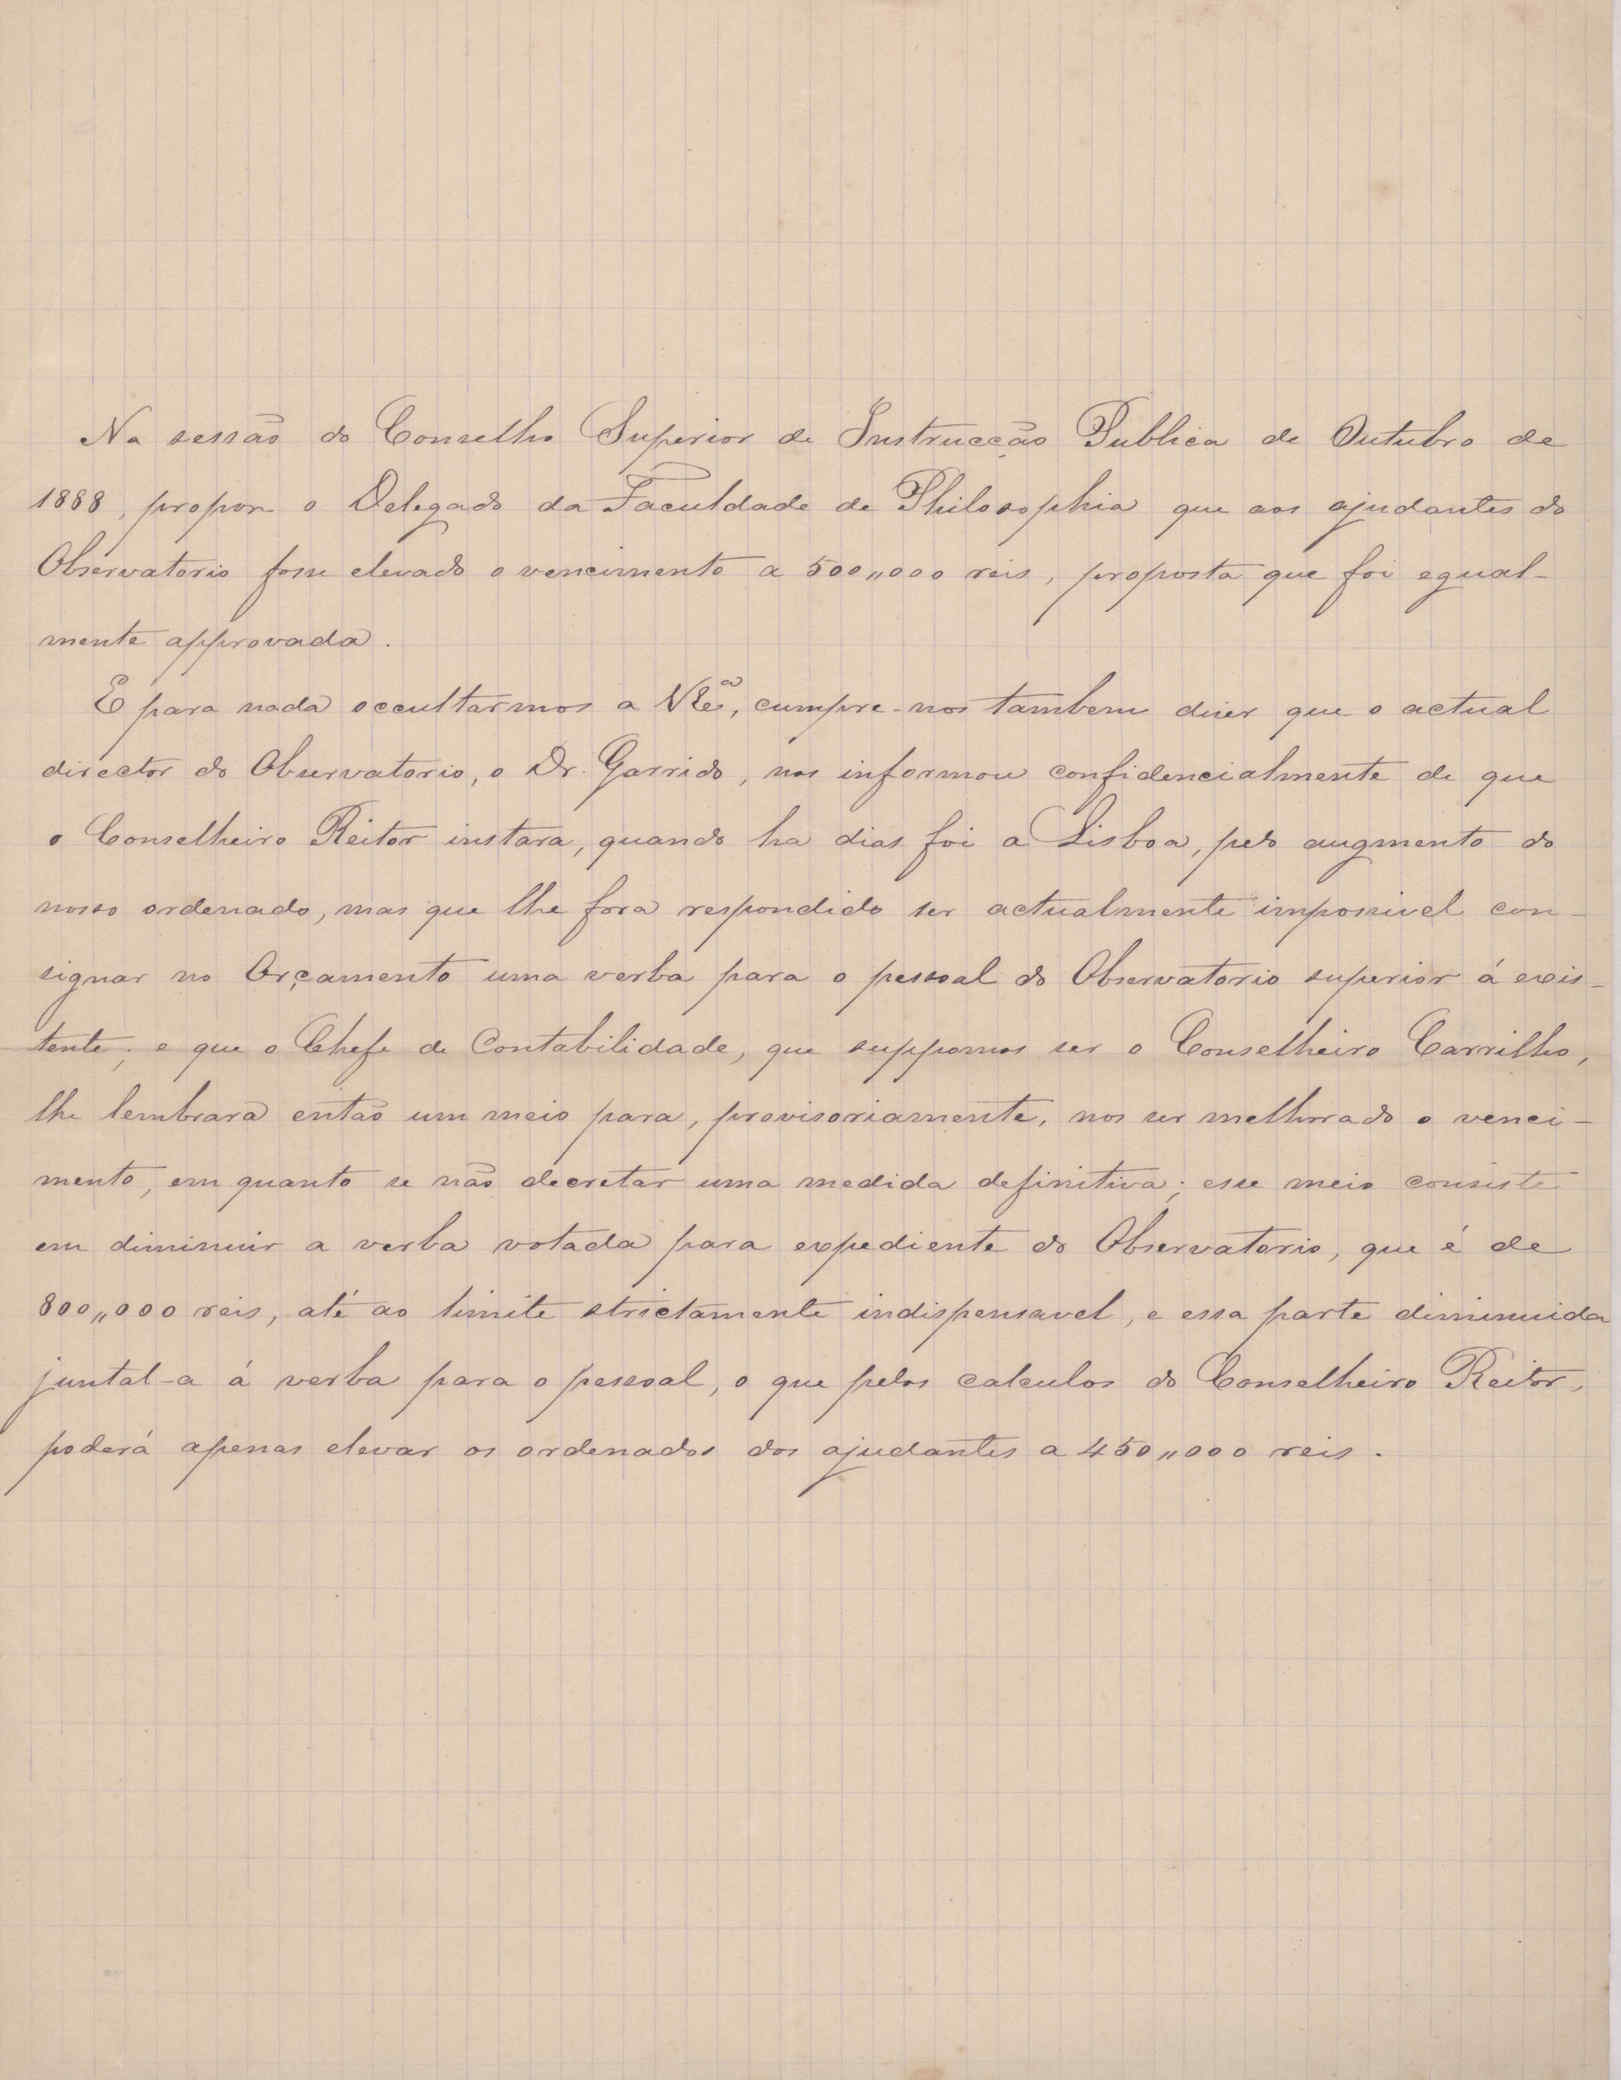 Na sessão do Conselho Superior de Instrucção Publica de Outubro de
1888, propoz o Delegado da Faculdade de Philosophia que aos ajudantes do
Observatorio fosse elevado o vencimento a 500,,000 reis, proposta que foi egual-
mente approvada.
E para nada occultarmos a V. Exª, cumpre-nos tambem dizer que o actual
director do Observatorio, o Dr. Garrido, nos informou confidencialmente de que
o Conselheiro Reitor instara, quando ha dias foi a Lisboa, pelo augmento do
nosso ordenado, mas que lhe fora respondido ser actualmente impossivel con-
signar no Orçamento uma verba para o pessoal do Observatorio superior á exis-
tente; e que o Chefe de Contabilidade, que suppomos ser o Conselheiro Carrilho,
lhe lembrara então um meio para, provisoriamente, nos ser melhorado o venci-
mento, em quanto se não decretar uma medida definitiva; esse meio consiste
em diminuir a verba votada para expediente do Observatorio, que é de
800,,000 reis, até ao limite strictamente indispensavel, e essa parte diminuida
juntal-a á verba para o pessoal, o que pelos calculos do Conselheiro Reitor,
poderá apenas elevar os ordenados dos ajudantes a 450,,000 reis.